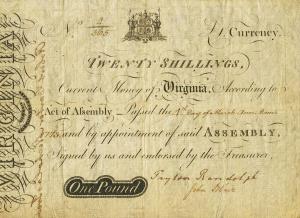 No
Currency.
TWENTY SHILLINGS,
Current Money of Virginia, According to
Act of Assembly Passed the
and by appointment of said ASSEMBLY,
Signed by us and endorsed by the Treasurer,
Peyton Randolph
One Pound
John Blair
VIRGINIA